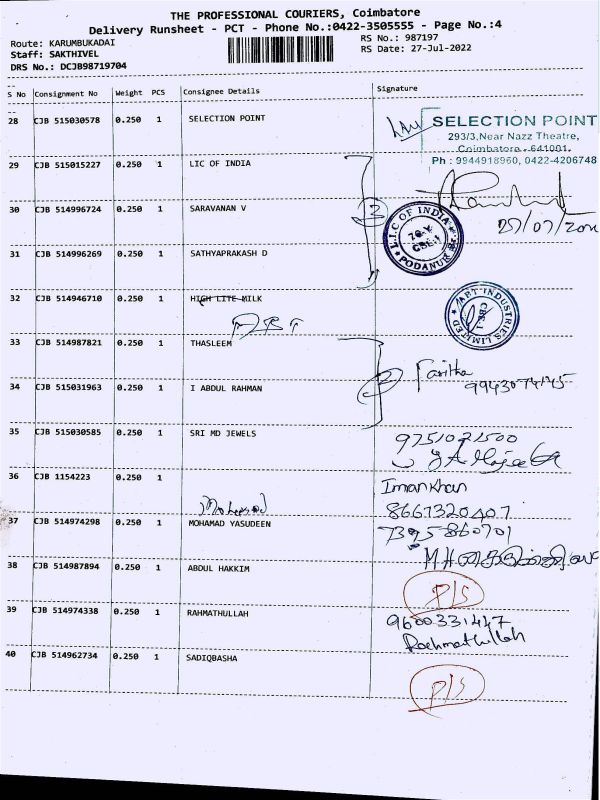 THE PROFESSIONAL COURIERS, Coimbatore
Delivery Runsheet - PCT - Phone No.:0422-3505555 - Page No.:4
Route: KARUMBUKADAI
Staff: SAKTHIVEL
DRS No.: DCJB98719704
RS No.: 987197
RS Date: 27-Jul-2022
S No Consignment No Weight PCS Consignee Details Signature
28 CJB 515030578 0.250 1 SELECTION POINT
SELECTION POINT
293/3,Near Nazz Theatre,
Coimbatore - 641001.
Ph : 9944918960, 0422-4206748
29 CJB 515015227 0.250 1 LIC OF INDIA
30 CJB 514996724 0.250 1 SARAVANAN V
L.I.C OF INDIA
CBE-1
PODANUR
31 CJB 514996269 0.250 1 SATHYAPRAKASH D
32 CJB 514946710 0.250 1 HIGH LITE MILK
ART INDUSTRIES LIMITED
CBE-1
33 CJB 514987821 0.250 1 THASLEEM
Faritha
34 CJB 515031963 0.250 1 I ABDUL RAHMAN
35 CJB 515030585 0.250 1 SRI MD JEWELS
9751021500
36 CJB 1154223 0.250 1
Imankhan
8667320407
37 CJB 514974298 0.250 1 MOHAMAD YASUDEEN
7395860701
38 CJB 514987894 0.250 1 ABDUL HAKKIM
P/S
39 CJB 514974338 0.250 1 RAHMATHULLAH
9600331447
Rachmathullah
40 CJB 514962734 0.250 1 SADIQBASHA
P/S